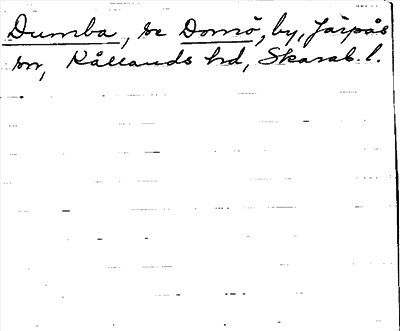 Dumba, se Domö, by, Järpås
sn, Kållands hd, Skarab. l.